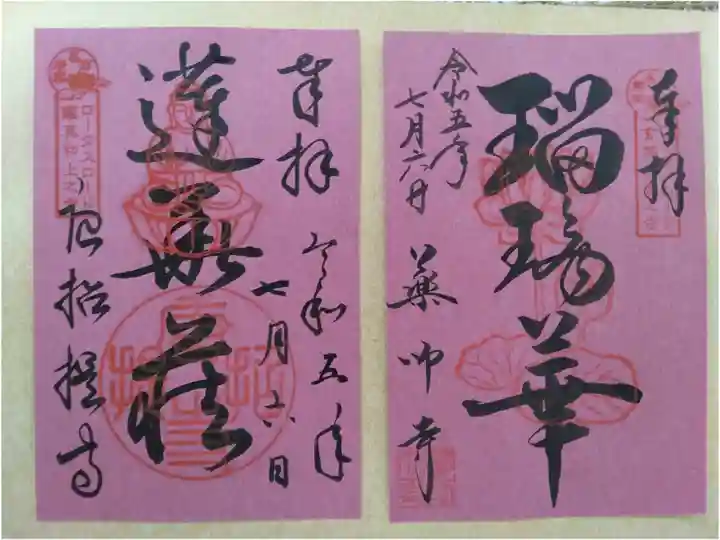 奉拝
瑠璃華
令和五年
七月六日
藥師寺
奉拝
令和五年
七月六日
蓮華蔵
唐招提寺
ロータスロード